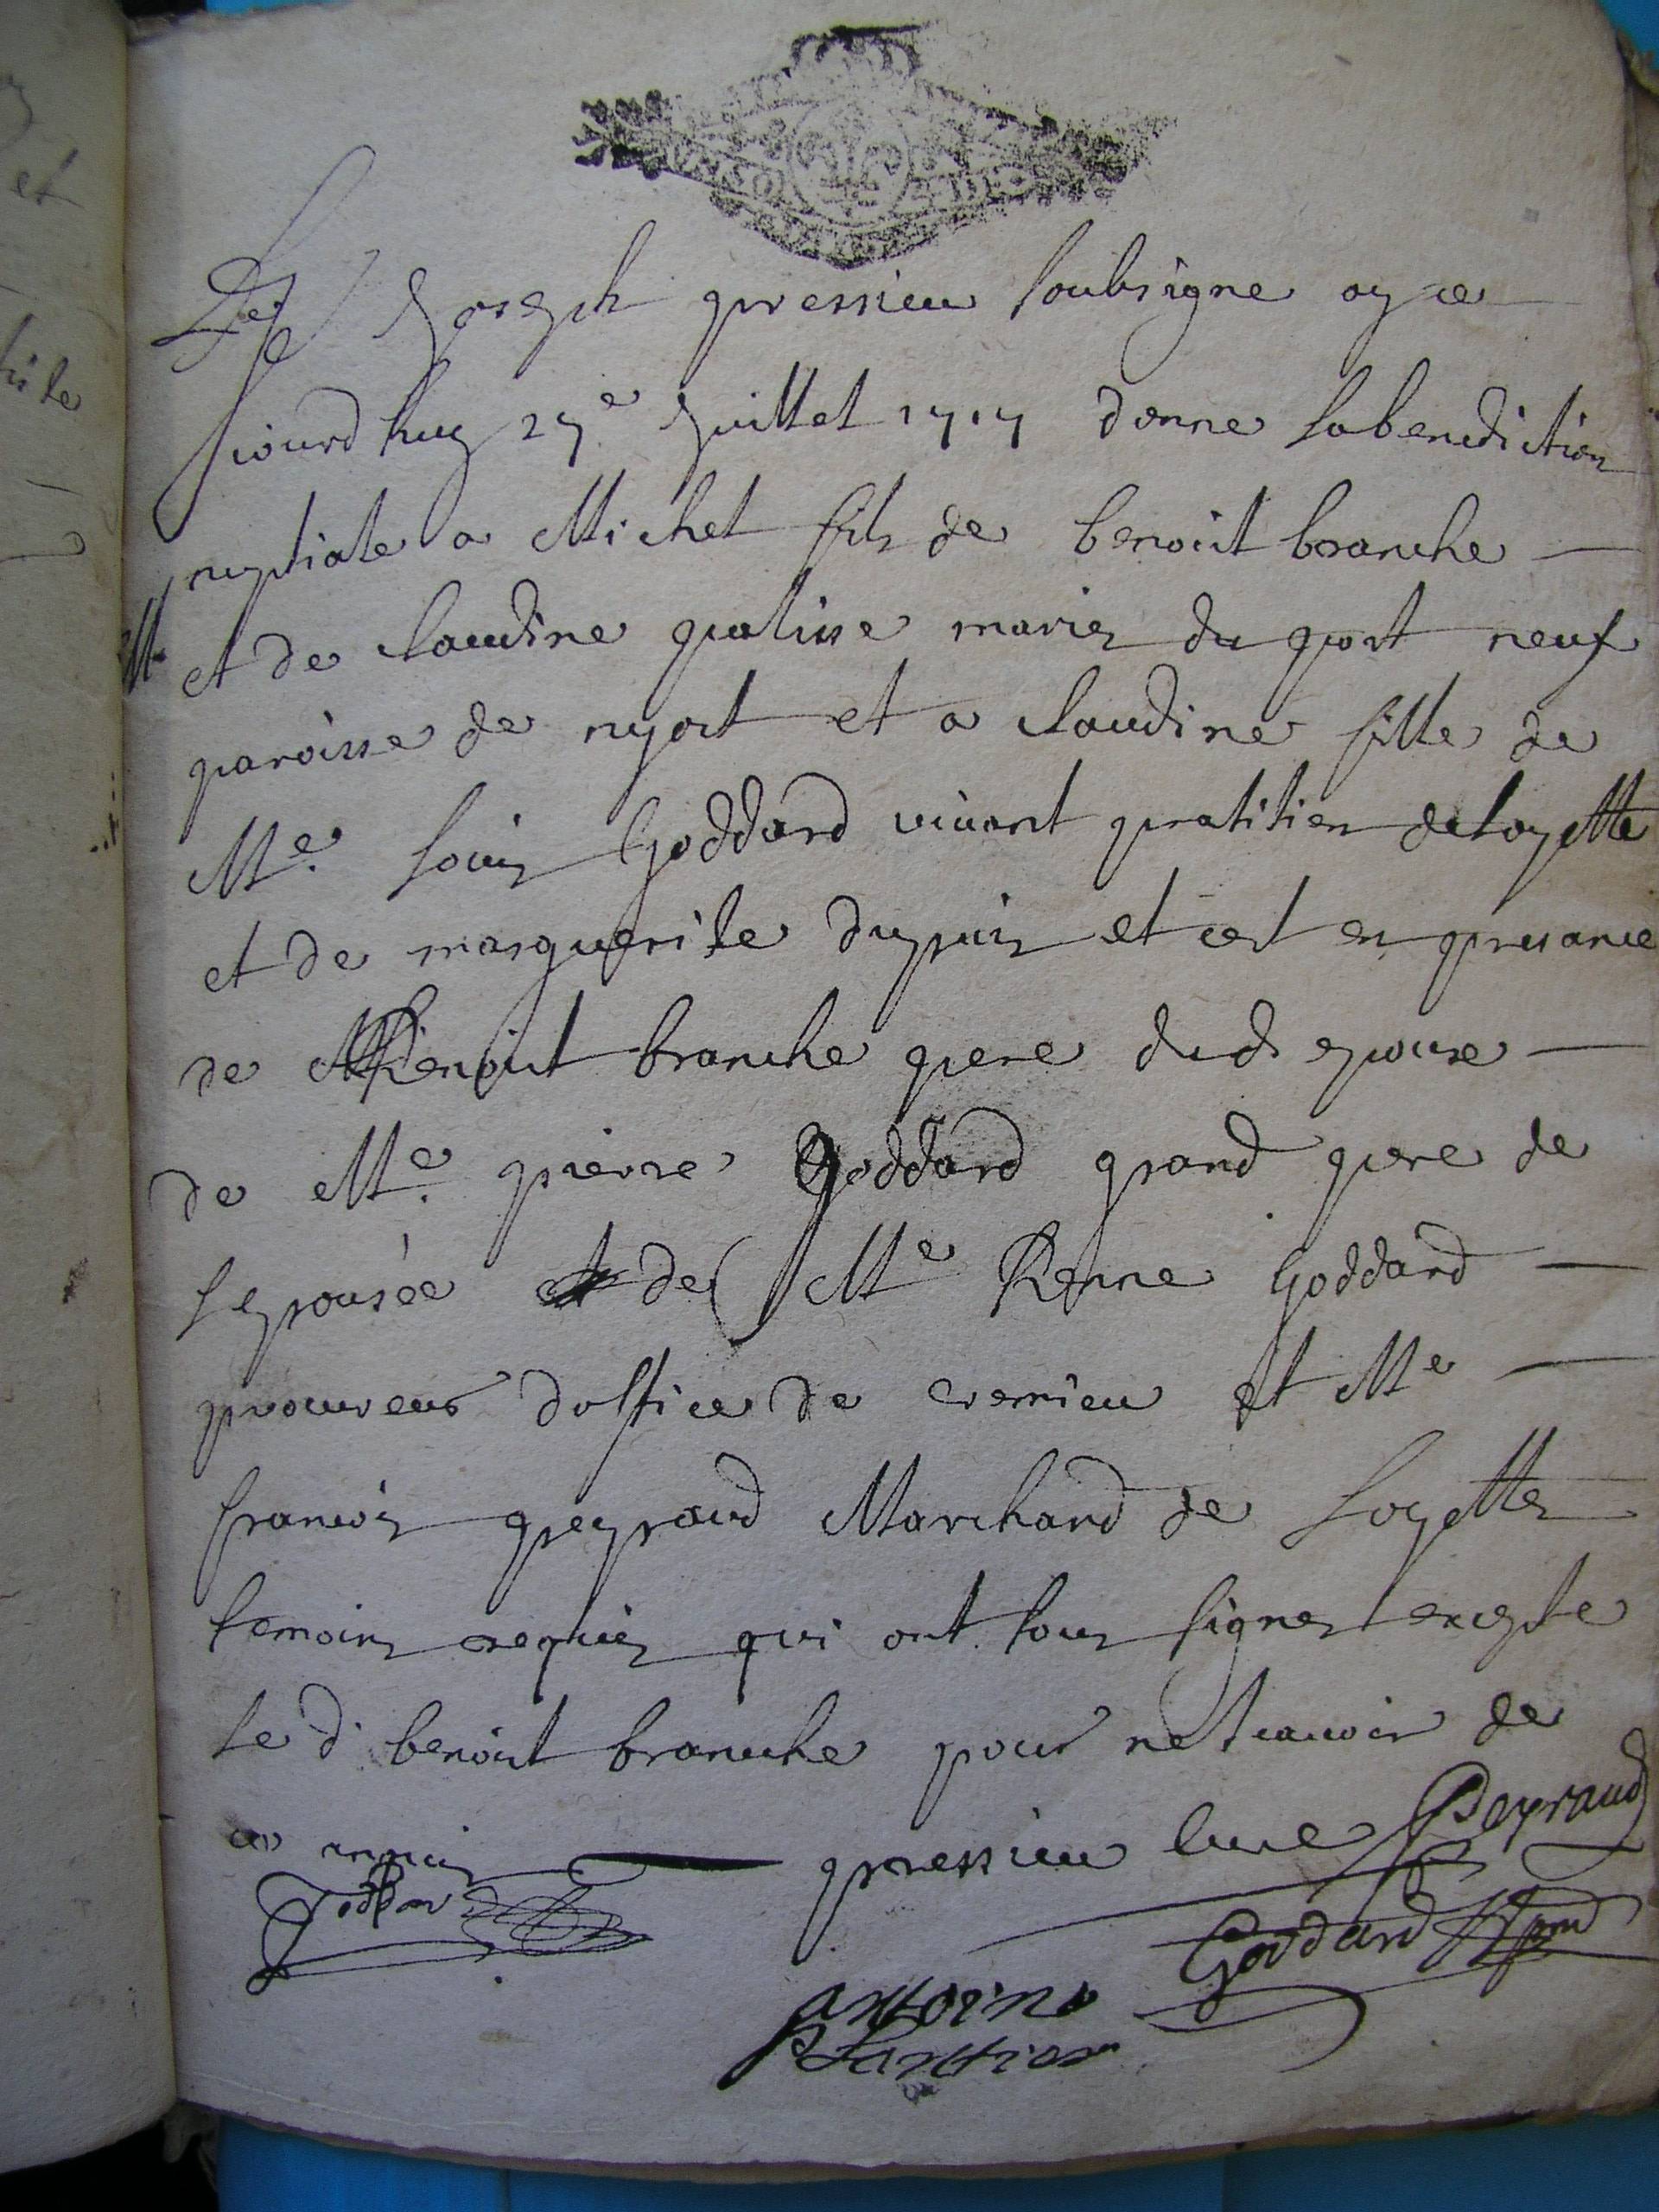 Je Joseph pressieu soubsigne ay ce
jourdhuy 27e Juillet 1717 donne la benediction
nuptiale a Michel fils de benoist branche
M
et de claudine palisse mariez du port neuf
paroisse de nyost et a claudine fille de
Me. Louis Goddard vivant pratitien de loyette
et de marguerite dupuis et cest en presance
de Benoist branche pere dud espouse
de Me. pierre Goddard grand pere de
lespousée de Me Renne Goddard
procureur doffice de cremieu et Me
francois peyraud Marchand de Loyettes
temoins requis qui ont tous signez excepte
le d. benoist branche pour ne scavoir de
ce enquis pressieu cure Peyraud
Goddard
Goddard
antoine
plantier